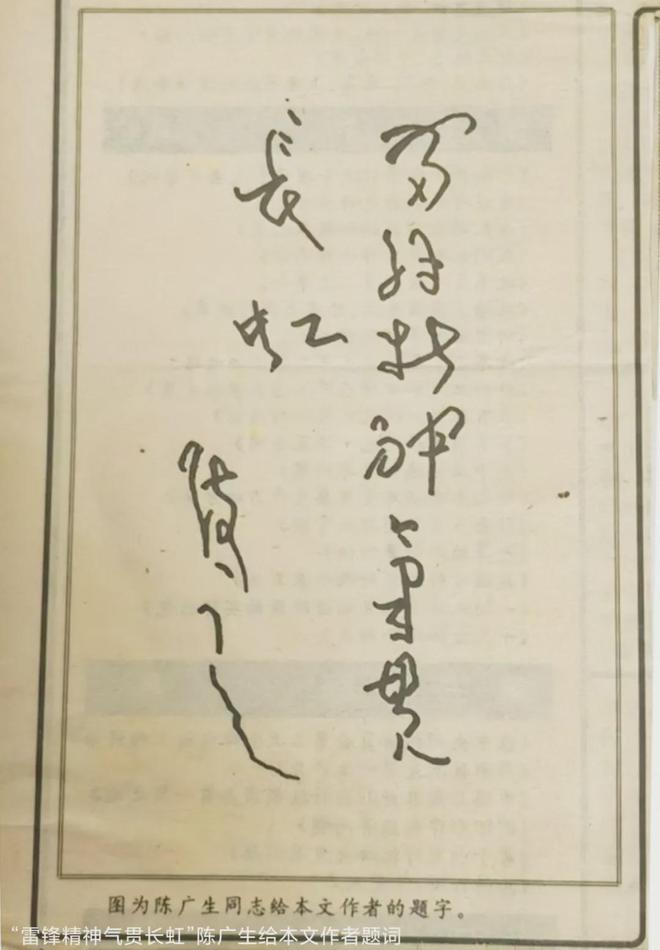 雷锋精神气贯
长虹
陈广生
图为陈广生同志给本文作者的题字。
“雷锋精神气贯长虹”陈广生给本文作者题词